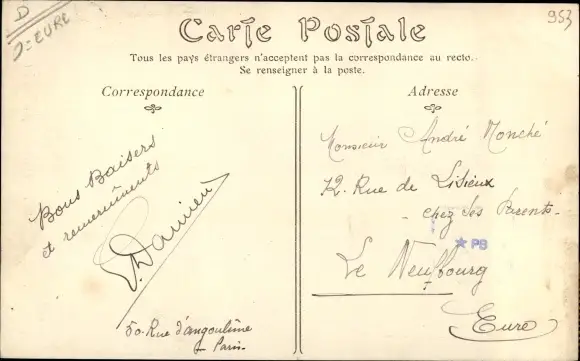 D
D=EURE
953
Carte Postale
Tous les pays étrangers n'acceptent pas la correspondance au recto.
Se renseigner à la poste.
Correspondance
Adresse
Bons Baisers
et remerciments
Damien
50. Rue d'angoulême
Paris-
Monsieur André Monché
12. Rue de Lisieux
- chez ses Parents -
★ PB
Le Neufbourg
Eure